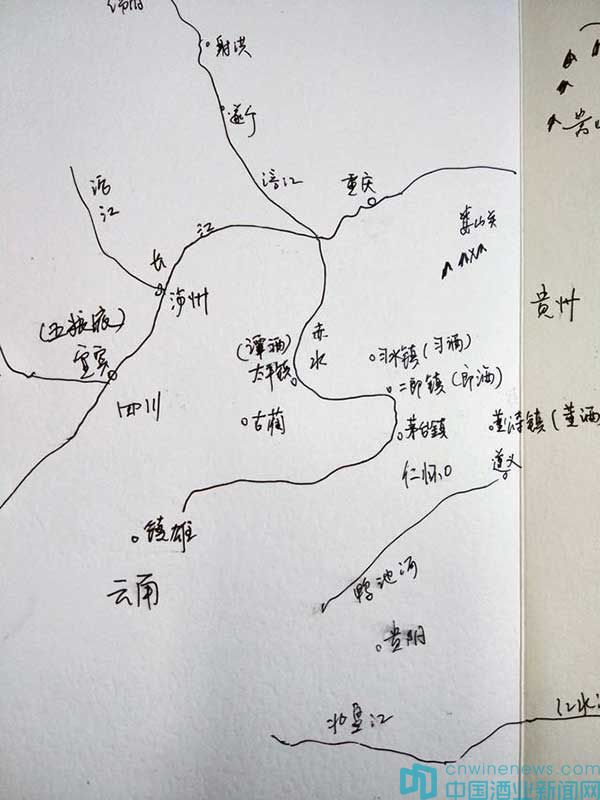 射洪
遂宁
涪江
重庆
沱江
娄山关
江
长
泸州
贵州
(五粮液)
宜宾
赤水
(潭酒)
太平镇
习水镇(习酒)
二郎镇(郎酒)
四川
古蔺
茅台镇
董公寺镇(董酒
仁怀
遵义
镇雄
云南
鸭池河
贵阳
北盘江
红水
cnwinenews.com
中国酒业新闻网